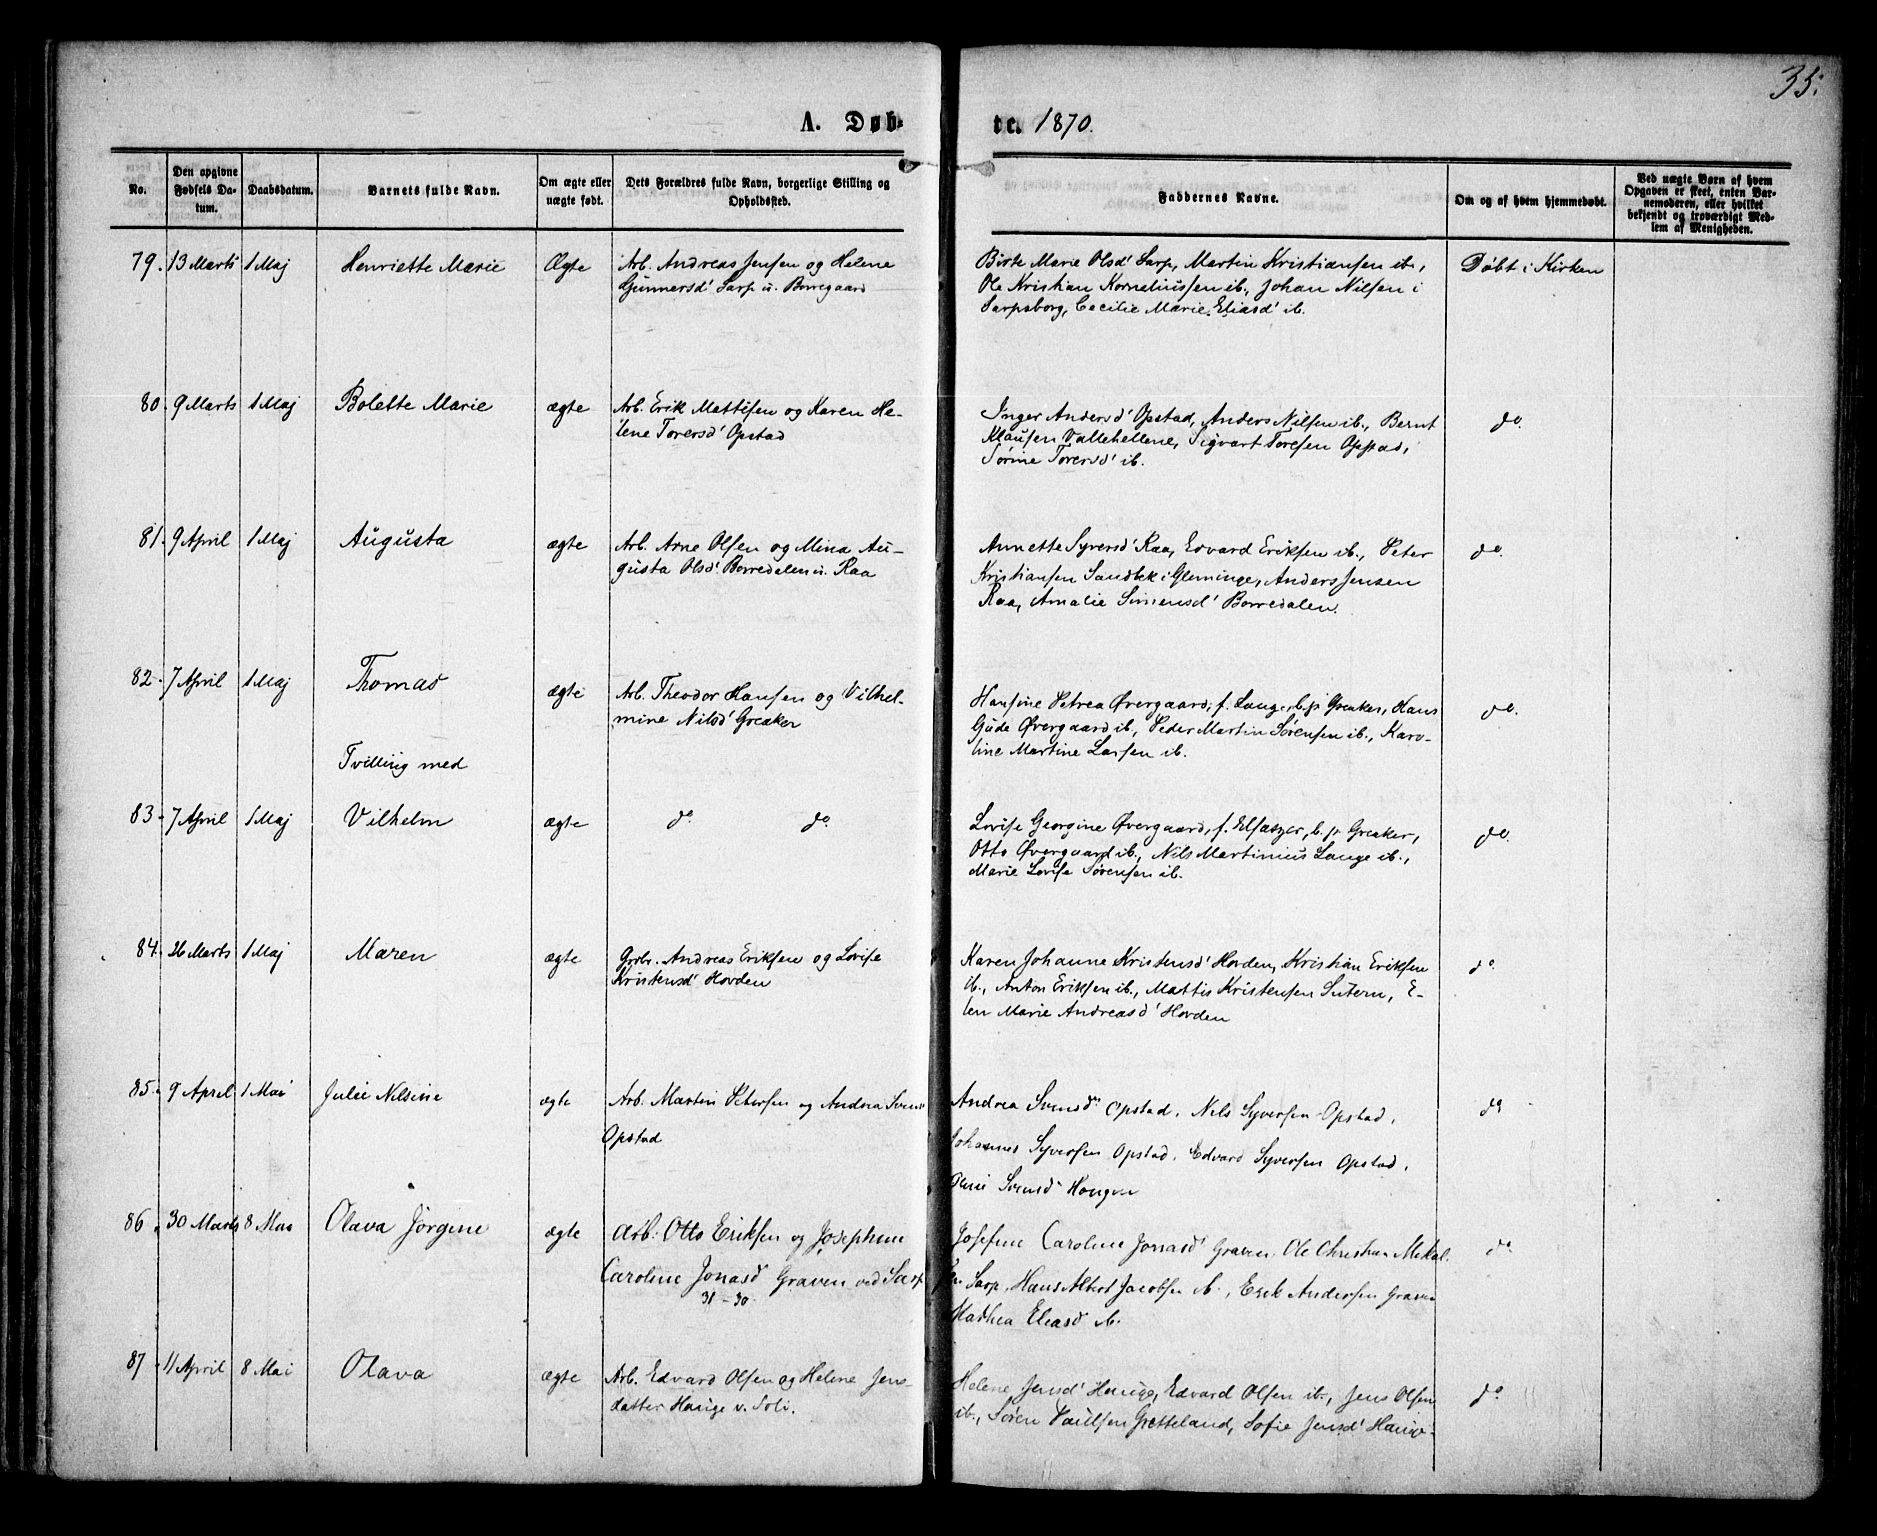 35.
A. Døb-
te. 1870.
No.
Den opgivne Fødsels Da-
tum.
Daabsdatum.
Barnets fulde Navn.
Om ægte eller
uægte født.
Dets Forældres fulde Navn, borgerlige Stilling og
Opholdssted.
Faddernes Navne.
Om og af hvem hjemmedøbt.
Ved uægte Børn af hvem
Opgaven er skeet, enten Bar-
nemoderen, eller hvilket
bekjendt og troværdigt Med-
lem af Menigheden.
79. 13 Marts 1 Maj Henriette Marie Ægte
Arb. Andreas Jensen og Helene
Gunnersd' Sarp u. Borregaard
Birte Marie Olsd' Sarp, Martin Kristiansen ib.,
Ole Kristian Korneliussen ib., Johan Nilsen i
Sarpsborg, Cecilie Marie Eliasd' ib.
Døbt i Kirken
80. 9 Marts 1 Maj Bolette Marie ægte
Arb. Erik Mattisen og Karen He-
lene Torersd' Opstad
Inger Andersd' Opstad, Anders Nilsen ib., Bernt
Klausen Vallehellene, Sigvart Toresen Opstad,
Sørine Torersd' ib.
do.
81. 9 April 1 Maj Augusta ægte
Arb. Arne Olsen og Mina Au-
gusta Olsd' Borredalen u. Raa
Annette Syversd' Raa, Edvard Eriksen ib., Peter
Kristiansen Sandbek i Gleminge, Anders Jensen
Raa, Amalie Simensd' Borredalen.
do.
82. 7 April 1 Maj Thomas ægte
Arb. Theodor Hansen og Vilhel-
mine Nilsd' Greaker
Hansine Petrea Øvergaard, f. Lange, b. p. Greaker, Hans
Gude Øvergaard ib., Peder Martin Sørensen ib., Karo-
line Martine Larsen ib.
do.
Tvilling med
83. 7 April 1 Maj Vilhelm ægte do. do.
Lovise Georgine Øvergaard, f. Elfaszer, b. p. Greaker,
Otto Øvergaard ib., Nils Martinius Lange ib.,
Marie Lovise Sørensen ib.
do.
84. 26 Marts 1 Maj Maren ægte
Grbr. Andreas Eriksen og Lovise
Kristensd' Hovden
Karen Johanne Kristensd' Hovden, Kristian Eriksen
ib., Anton Eriksen ib., Mattis Kristensen Sutern, E-
len Marie Andreasd' Hovden
do
85. 9 April 1 Mai Julie Nilsine ægte
Arb. Martin Petersen og Andrea Svens
Opstad
Andrea Svensd' Opstad, Nils Syversen Opstad,
Johannes Syversen Opstad, Edvard Syversen Opstad,
Oline Svensd' Hougen
do
86. 30 Marts 8 Mai Olava Jørgine ægte
Arb. Otto Eriksen og Josephine
Caroline Jonasd' Graven ved Sarp
31-30
Josefine Caroline Jonasd' Graven, Ole Christian Mekal-
sen Sarp, Hans Albert Jacobsen ib., Erik Andersen Graven
Mathea Eliasd' ib.
do
87. 11 April 8 Mai Olava ægte
Arb. Edvard Olsen og Helene Jens-
datter Hauge v. Soli.
Helene Jensd' Hauge, Edvard Olsen ib., Jens Olsen
ib., Søren Paulsen Gretteland, Sofie Jensd' Hauge.
do